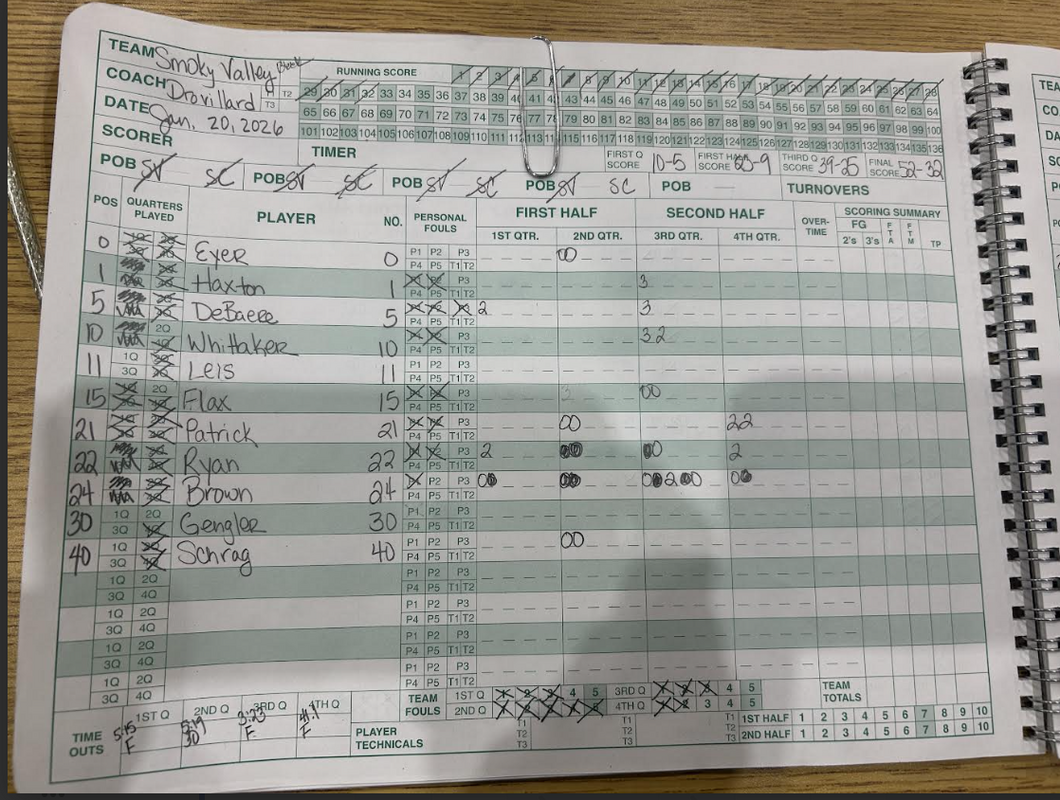 TEAM Smoky Valley
COACH Drovillard
DATE Jan. 20, 2026
SCORER
H T2
T3
RUNNING SCORE 1 2 3 4 5 6 7 8 9 10 11 12 13 14 15 16 17 18 19 20 21 22 23 24 25 26 27 28
29 30 31 32 33 34 35 36 37 38 39 40 41 42 43 44 45 46 47 48 49 50 51 52 53 54 55 56 57 58 59 60 61 62 63 64
65 66 67 68 69 70 71 72 73 74 75 76 77 78 79 80 81 82 83 84 85 86 87 88 89 90 91 92 93 94 95 96 97 98 99 100
101 102 103 104 105 106 107 108 109 110 111 112 113 114 115 116 117 118 119 120 121 122 123 124 125 126 127 128 129 130 131 132 133 134 135 136
TIMER
FIRST Q SCORE 10-5 FIRST HALF SCORE THIRD Q SCORE 39-25 FINAL SCORE 52-32
POB SV SC POB SV SC POB SV SC POB SV SC POB — TURNOVERS
POS QUARTERS PLAYED PLAYER NO. PERSONAL FOULS FIRST HALF SECOND HALF OVER-TIME SCORING SUMMARY
1ST QTR. 2ND QTR. 3RD QTR. 4TH QTR. FG 2's 3's FTA FTM TP
0 Eyer 0 P1 P2 P3 00
P4 P5 T1 T2
1 Haxton 1 P3 3
P4 P5 T1 T2
5 DeBaere 5 2 3
P4 P5 T1 T2
10 2Q Whittaker 10 P3 3 2
P4 P5 T1 T2
11 1Q Leis 11 P1 P2 P3
3Q P4 P5 T1 T2
15 2Q Flax 15 P3 3 00
P4 P5 T1 T2
21 Patrick 21 P3 00 22
P4 P5 T1 T2
22 Ryan 22 P3 2 00 00 2
P4 P5 T1 T2
24 Brown 24 P2 P3 00 00 00200 00
P4 P5 T1 T2
30 1Q 2Q Gengler 30 P1 P2 P3
3Q P4 P5 T1 T2
40 1Q Schrag 40 P1 P2 P3 00
3Q P4 P5 T1 T2
1Q 2Q P1 P2 P3
3Q 4Q P4 P5 T1 T2
1Q 2Q P1 P2 P3
3Q 4Q P4 P5 T1 T2
1Q 2Q P1 P2 P3
3Q 4Q P4 P5 T1 T2
1Q 2Q P1 P2 P3
3Q 4Q P4 P5 T1 T2
TEAM FOULS 1ST Q 1 2 3 4 5 3RD Q 1 2 3 4 5 TEAM TOTALS
2ND Q 1 2 3 4 5 4TH Q 1 2 3 4 5
TIME OUTS 1ST Q 2ND Q 3RD Q 4TH Q
5:15 5:19 3:23
F 30 F F
PLAYER TECHNICALS T1 T2 T3 T1 T2 T3 T1 T2 T3
1ST HALF 1 2 3 4 5 6 7 8 9 10
2ND HALF 1 2 3 4 5 6 7 8 9 10